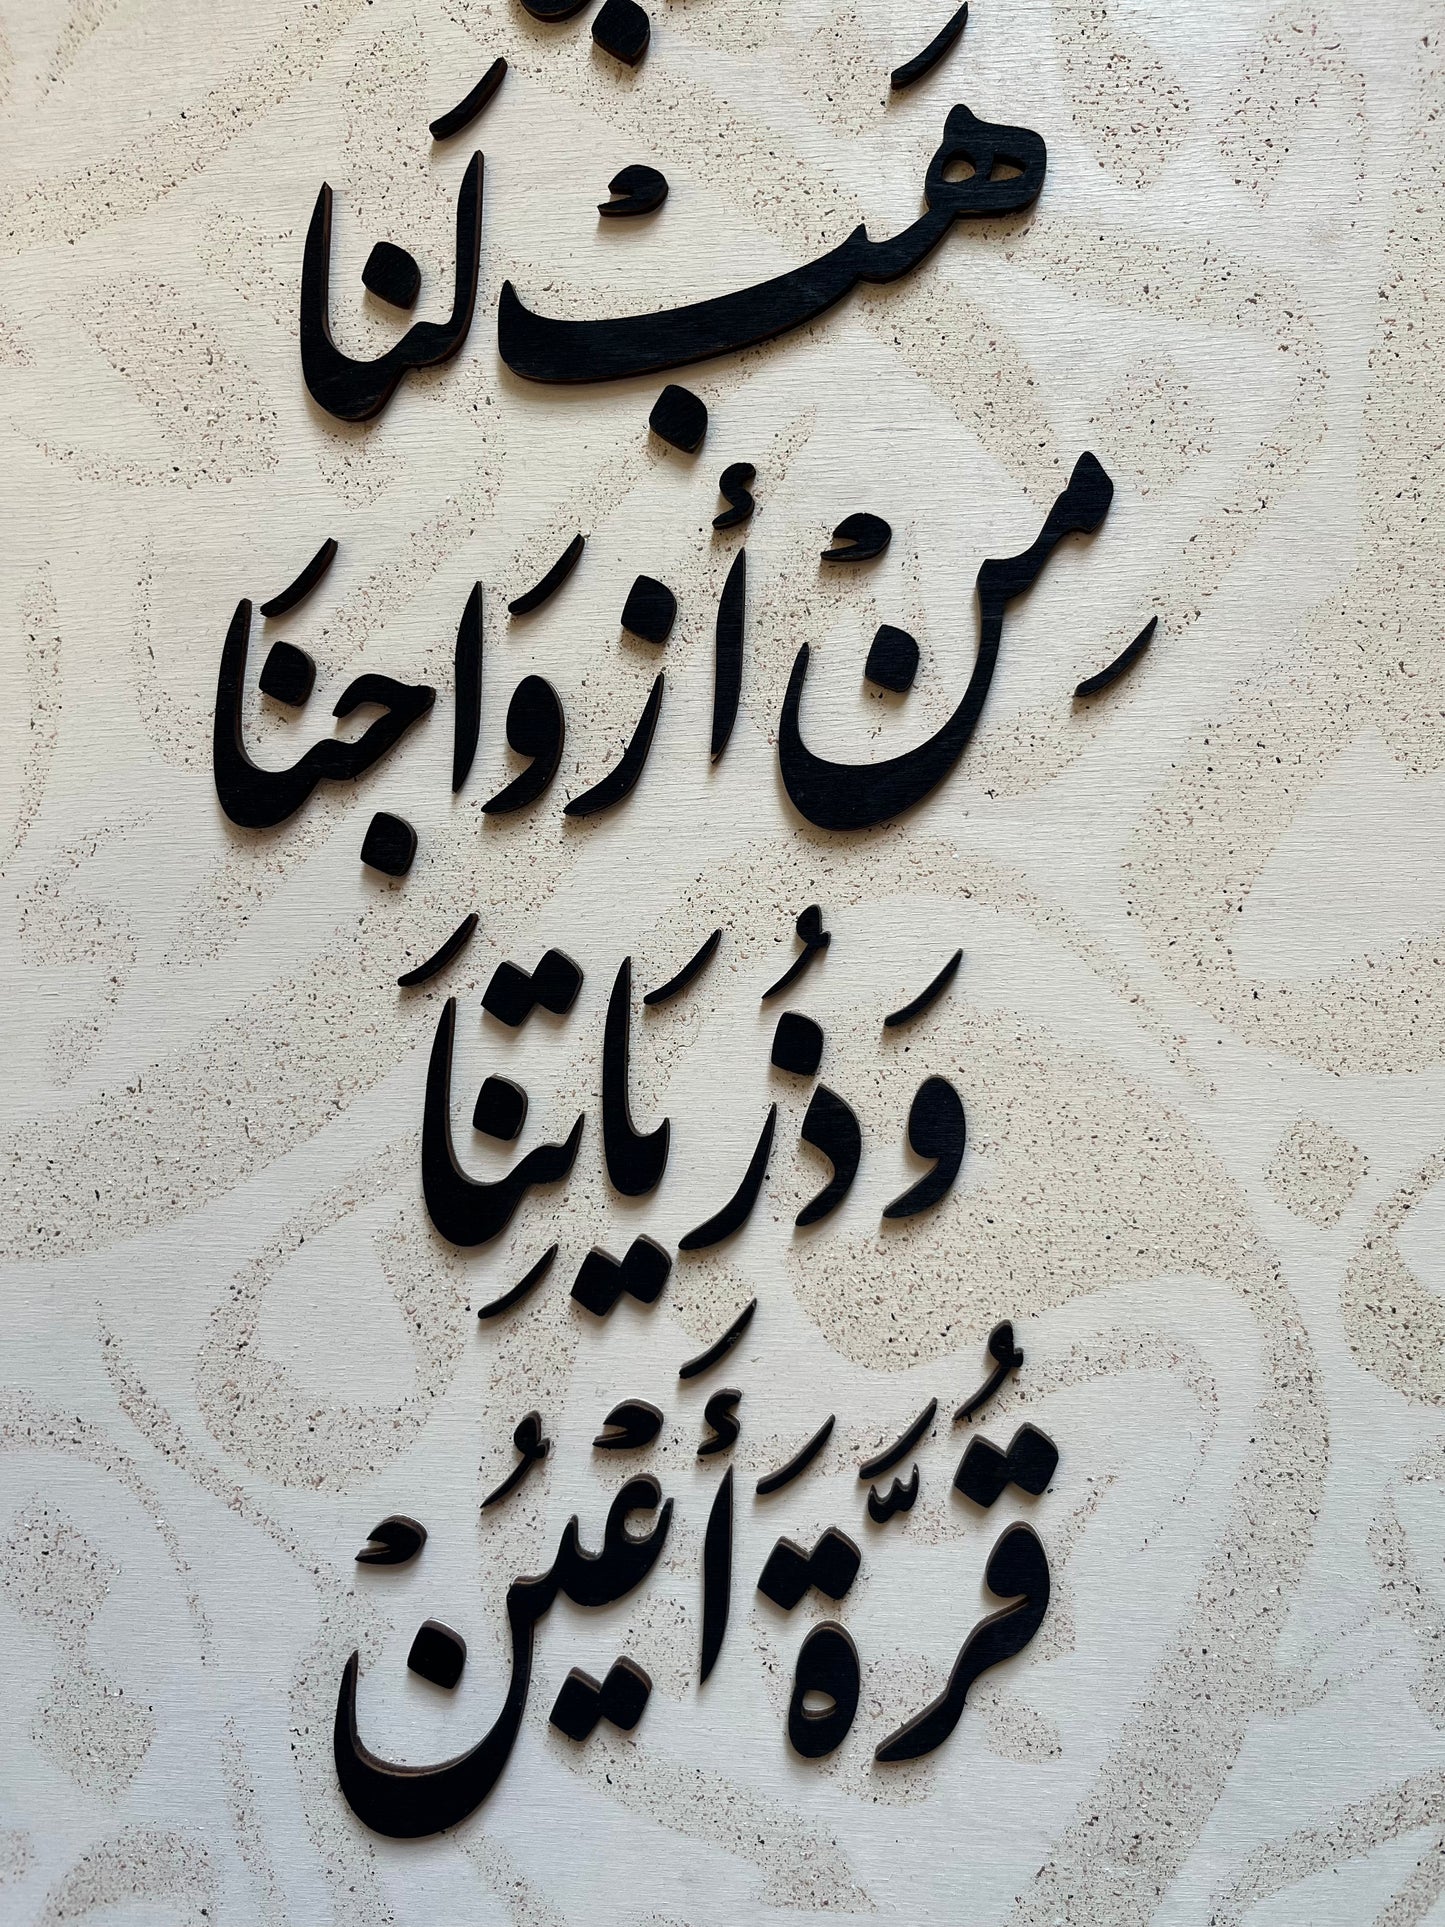 هَبْ لَنَا
مِنْ أَزوَاجِنَا
وَذُريَاتِنَا
قُرَّةَ أَعْيُنْ